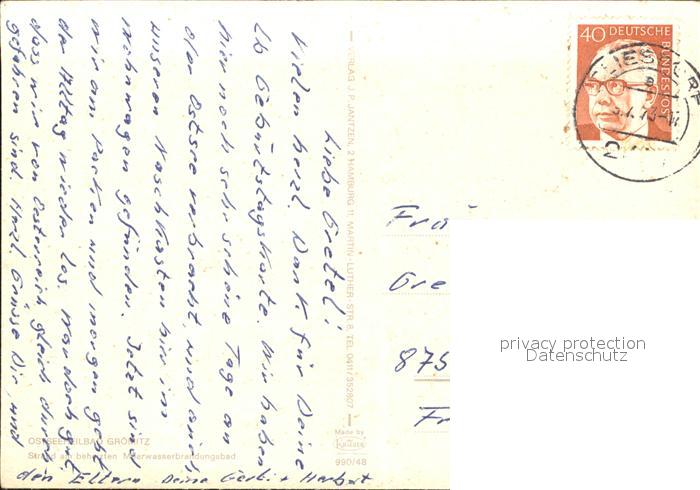 Liebe Gretel!
Vielen herzl. Dank für Deine
lb Geburtstagskarte. Wir haben
hier noch sehr schöne Tage an
der Ostsee verbracht, und auch
unseren Naschkasten hier im
wohnwagen gefunden. Jetzt sind
wir am Packen und morgen geht
der Alltag wieder los. War doch gut
dass wir von Österreich gleich durch
gefahren sind. Herzl. Grüsse Dir, und
den Eltern Deine Gerti + Herbert
OSTSEEHEILBAD GRÖMITZ
Strand am beheizten Meerwasserbrandungsbad
VERLAG J. P. JANTZEN, 2 HAMBURG 11, MARTIN-LUTHER-STR. 8, TEL. 0411/352807
Made by
KRÜGER
990/48
40 DEUTSCHE
BUNDESPOST
Gre
875
privacy protection
Datenschutz